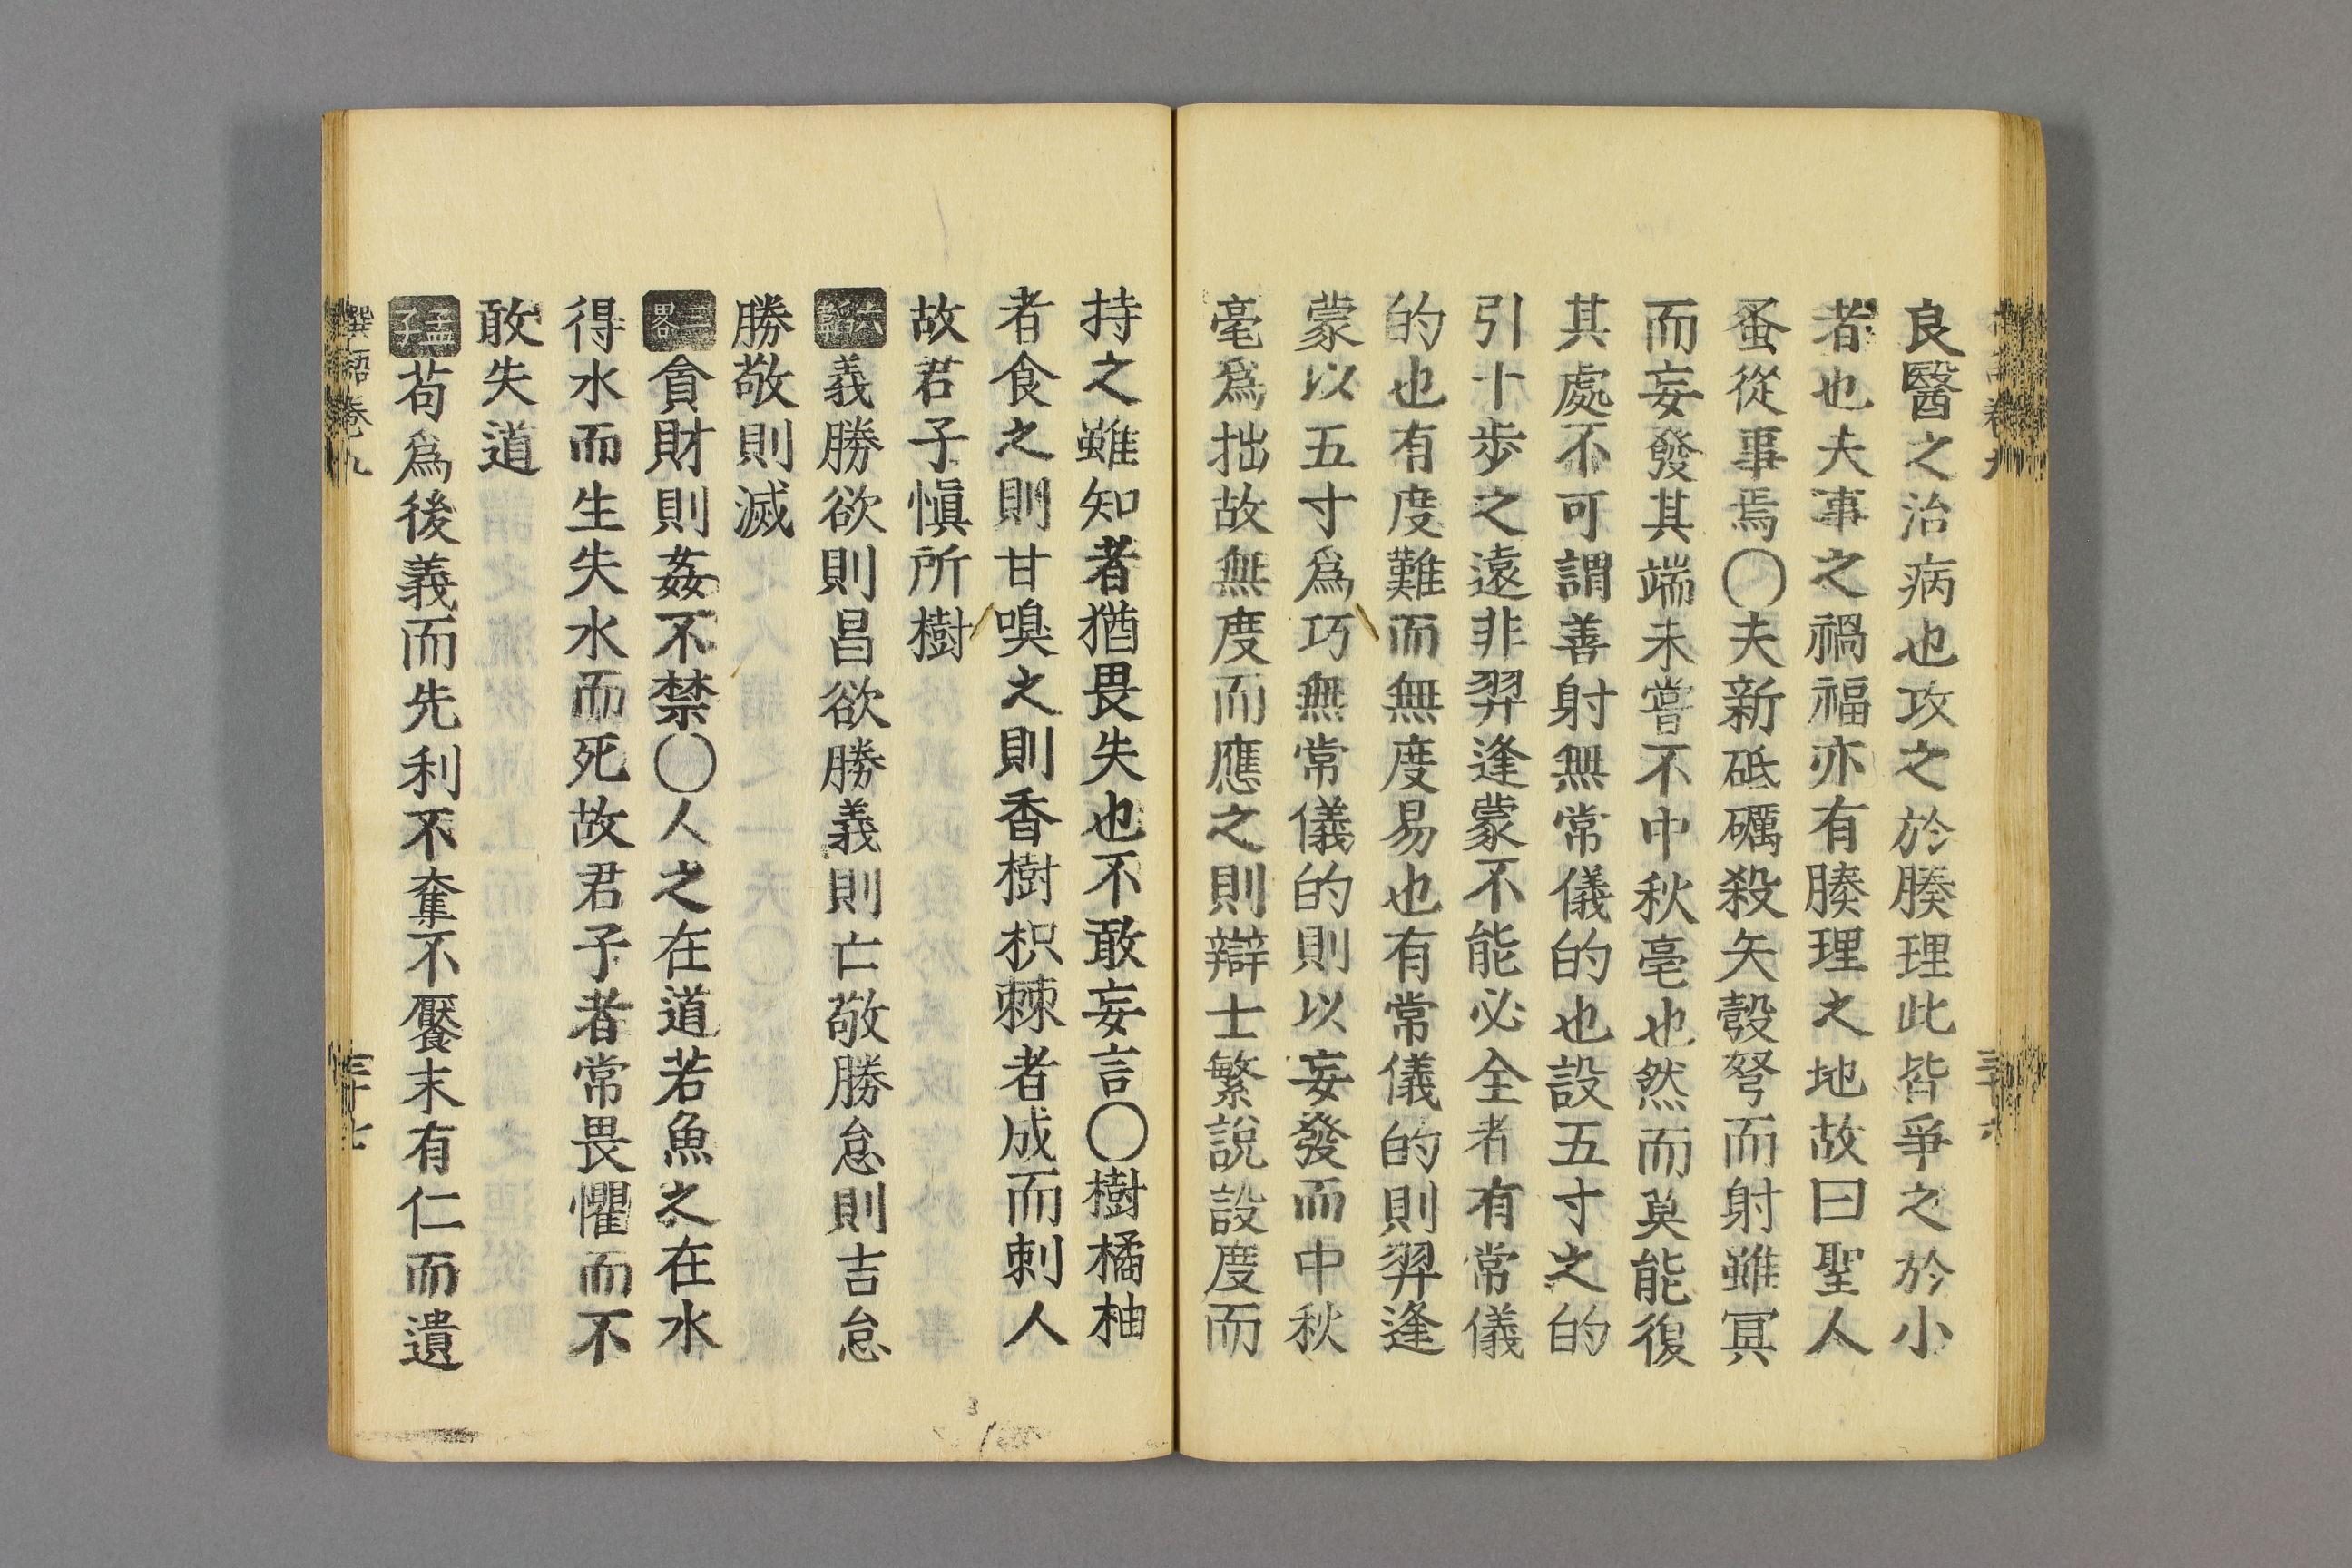 良醫之治病也攻之於腠理此皆爭之於小
者也夫事之禍福亦有腠理之地故曰聖人
蚤從事焉〇夫新砥礪殺矢彀弩而射雖冥
而妄發其端未嘗不中秋毫也然而莫能復
其處不可謂善射無常儀的也設五寸之的
引十步之遠非羿逢蒙不能必全者有常儀
的也有度難而無度易也有常儀的則羿逢
蒙以五寸爲巧無常儀的則以妄發而中秋
毫爲拙故無度而應之則辯士繁說設度而
持之雖知者猶畏失也不敢妄言〇樹橘柚
者食之則甘嗅之則香樹枳棘者成而刺人
故君子愼所樹
六韜義勝欲則昌欲勝義則亡敬勝怠則吉怠
勝敬則滅
三畧貪財則姦不禁〇人之在道若魚之在水
得水而生失水而死故君子者常畏懼而不
敢失道
孟子苟爲後義而先利不奪不饜未有仁而遺
撰語卷九 三十七